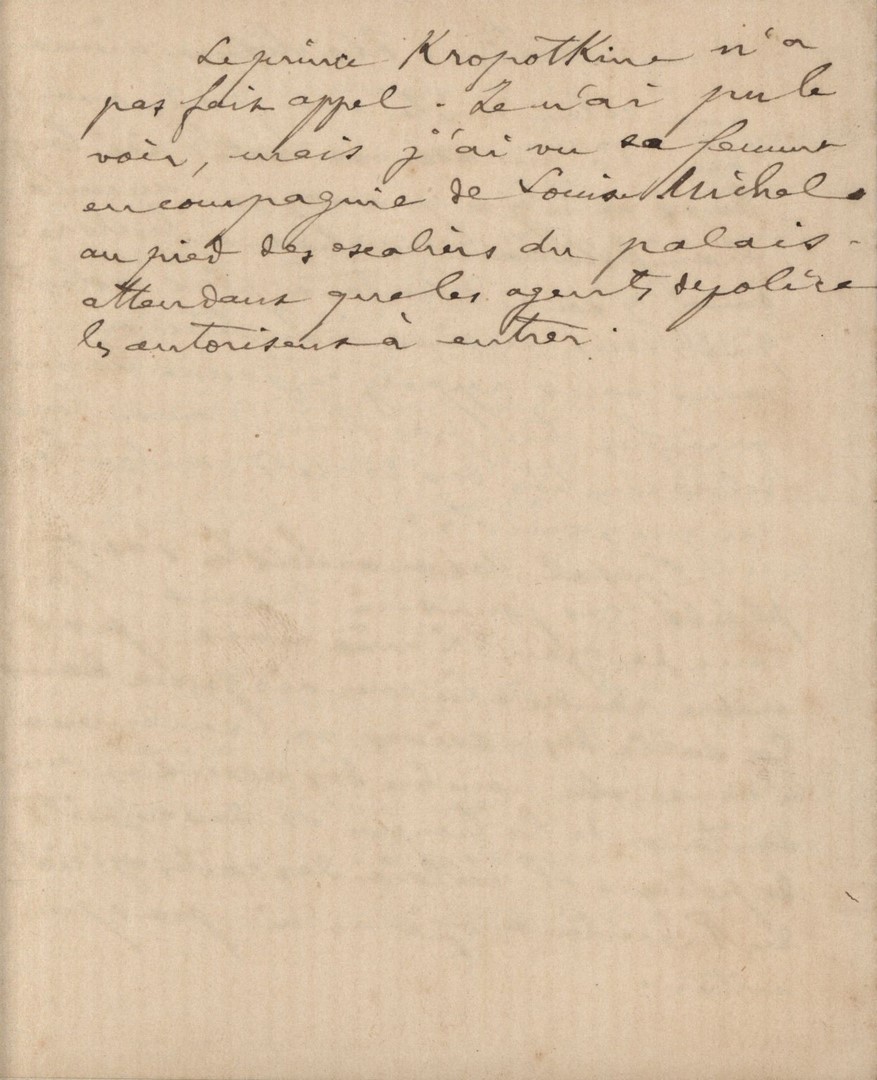 Le prince Kropotkine n'a
pas fait appel. Je n'ai pu le
voir, mais j'ai vu sa femme
en compagnie de Louise Michel
au pied des escaliers du palais -
attendant que les agents de police
les autorisent à entrer.